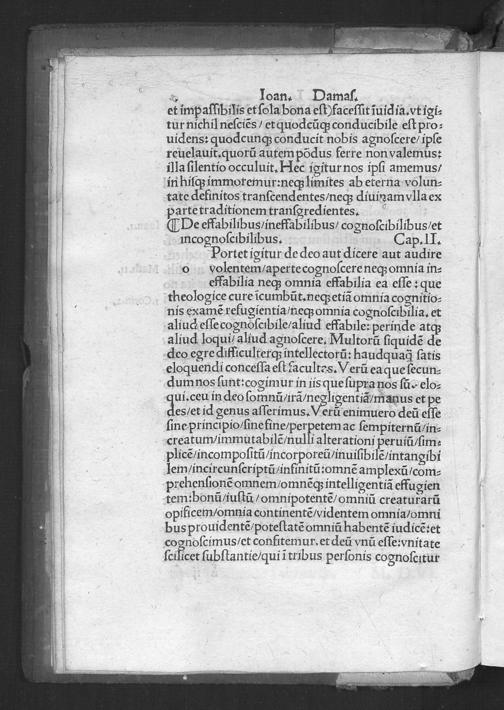 Ioan. Damas.
et impassibilis et sola bona est) facessit īuidia. vt igi-
tur nichil nesciēs / et quodcūqʒ conducibile est pro-
uidens: quodcunqʒ conducit nobis agnoscere / ipse
reuelauit. quorū autem pōdus ferre non valemus:
illa silentio occuluit. Hec igitur nos ipsi amemus /
in hisqʒ immoremur: neqʒ limites ab eterna volun-
tate definitos transcendentes / neqʒ diuinam vlla ex
parte traditionem transgredientes.
¶ De effabilibus / ineffabilibus / cognoscibilibus / et
incognoscibilibus. Cap. II.
Portet igitur de deo aut dicere aut audire
o volentem / aperte cognoscere neqʒ omnia in-
effabilia neqʒ omnia effabilia ea esse: que
theologice cure īcumbūt. neqʒ etiā omnia cognitio-
nis examē refugientia / neqʒ omnia cognoscibilia. et
aliud esse cognoscibile / aliud effabile: perinde atqʒ
aliud loqui / aliud agnoscere. Multorū siquidē de
deo egre difficulterqʒ intellectorū: haudquaqʒ satis
eloquendi concessa est facultas. Verū ea que secun-
dum nos sunt: cogimur in iis que supra nos sūt elo-
qui. ceu in deo somnū / irā / negligentiā / manus et pe
des / et id genus asserimus. Verū enimuero deū esse
sine principio / sine fine / perpetem ac sempiternū / in-
creatum / immutabilē / nulli alterationi peruiū / sim-
plicē / incompositū / incorporeū / inuisibilē / intangibi
lem / incircunscriptū / infinitū: omnē amplexū / com-
prehensionē omnem / omnēqʒ intelligentiā effugien
tem: bonū / iustū / omnipotentē / omniū creaturarū
opificem / omnia continentē / videntem omnia / omni
bus prouidentē / potestatē omniū habentē iudicē: et
cognoscimus / et confitemur. et deū vnū esse: vnitate
scilicet substantie / qui ī tribus personis cognoscitur